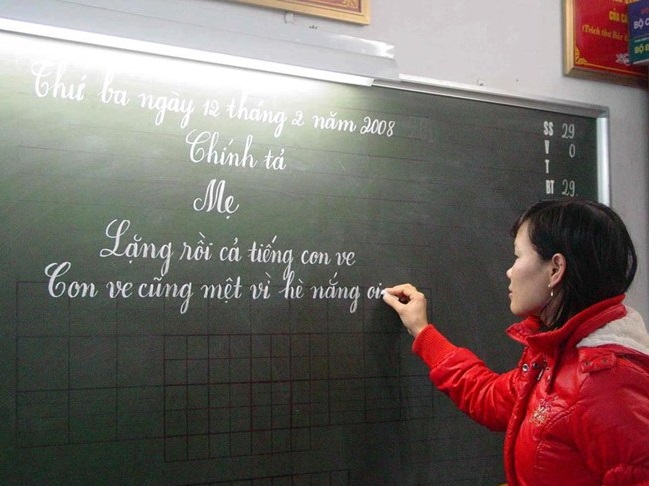 Thứ ba ngày 12 tháng 2 năm 2008
Chính tả
Mẹ
Lặng rồi cả tiếng con ve
Con ve cũng mệt vì hè nắng oi
SS 29
V 0
T
BT 29